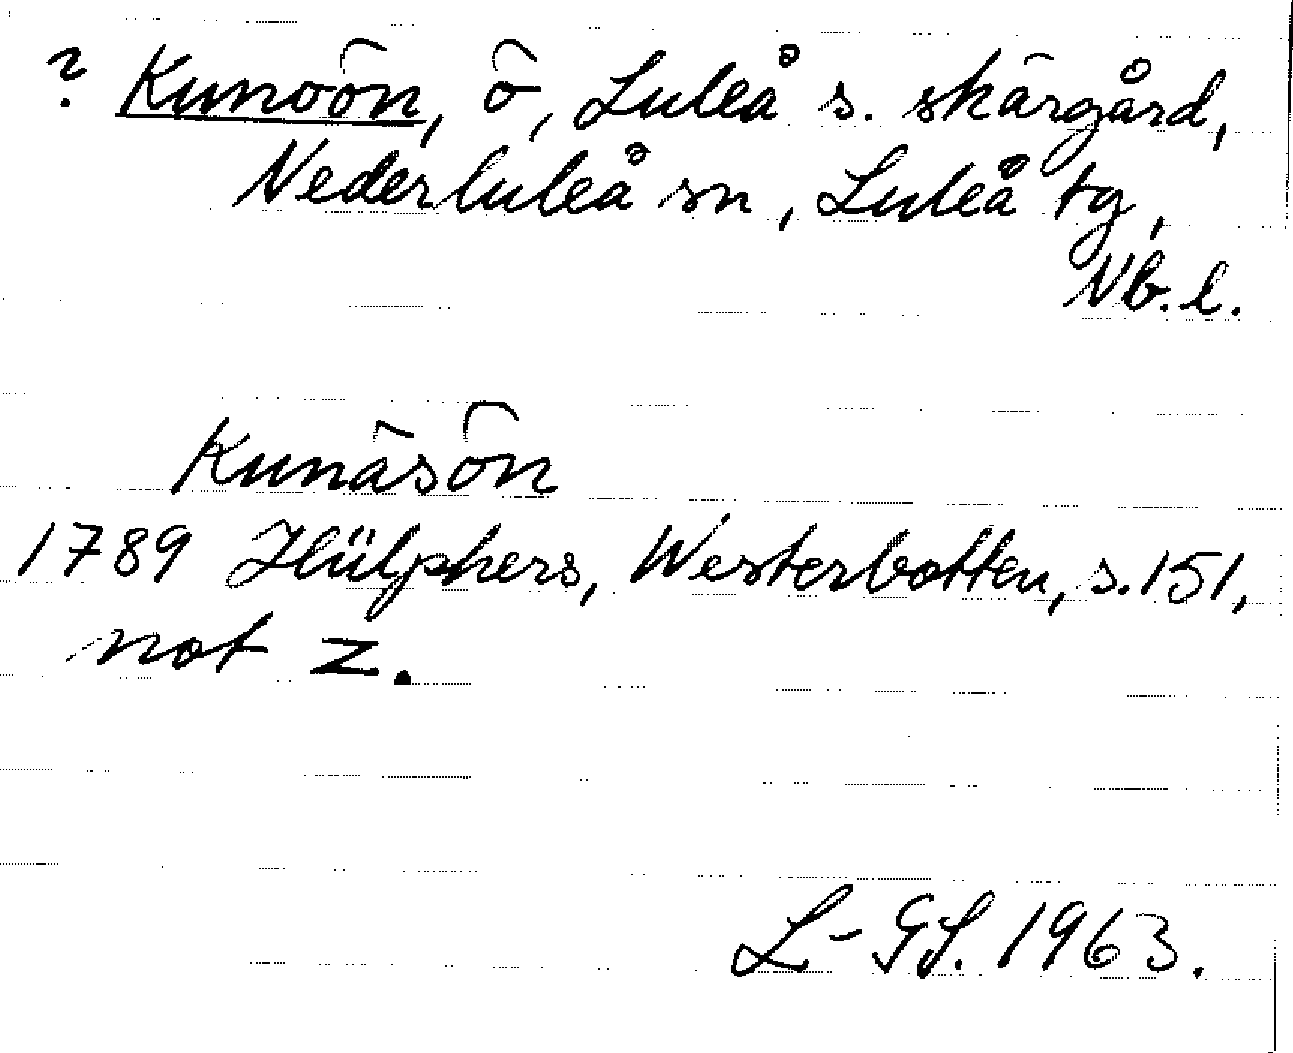 ? Kunoön, ö, Luleå s. skärgård,
Nederluleå sn, Luleå tg,
Nb. l.
Kunäsön
1789 Hülphers, Westerbotten, s. 151,
not z.
L-GL. 1963.